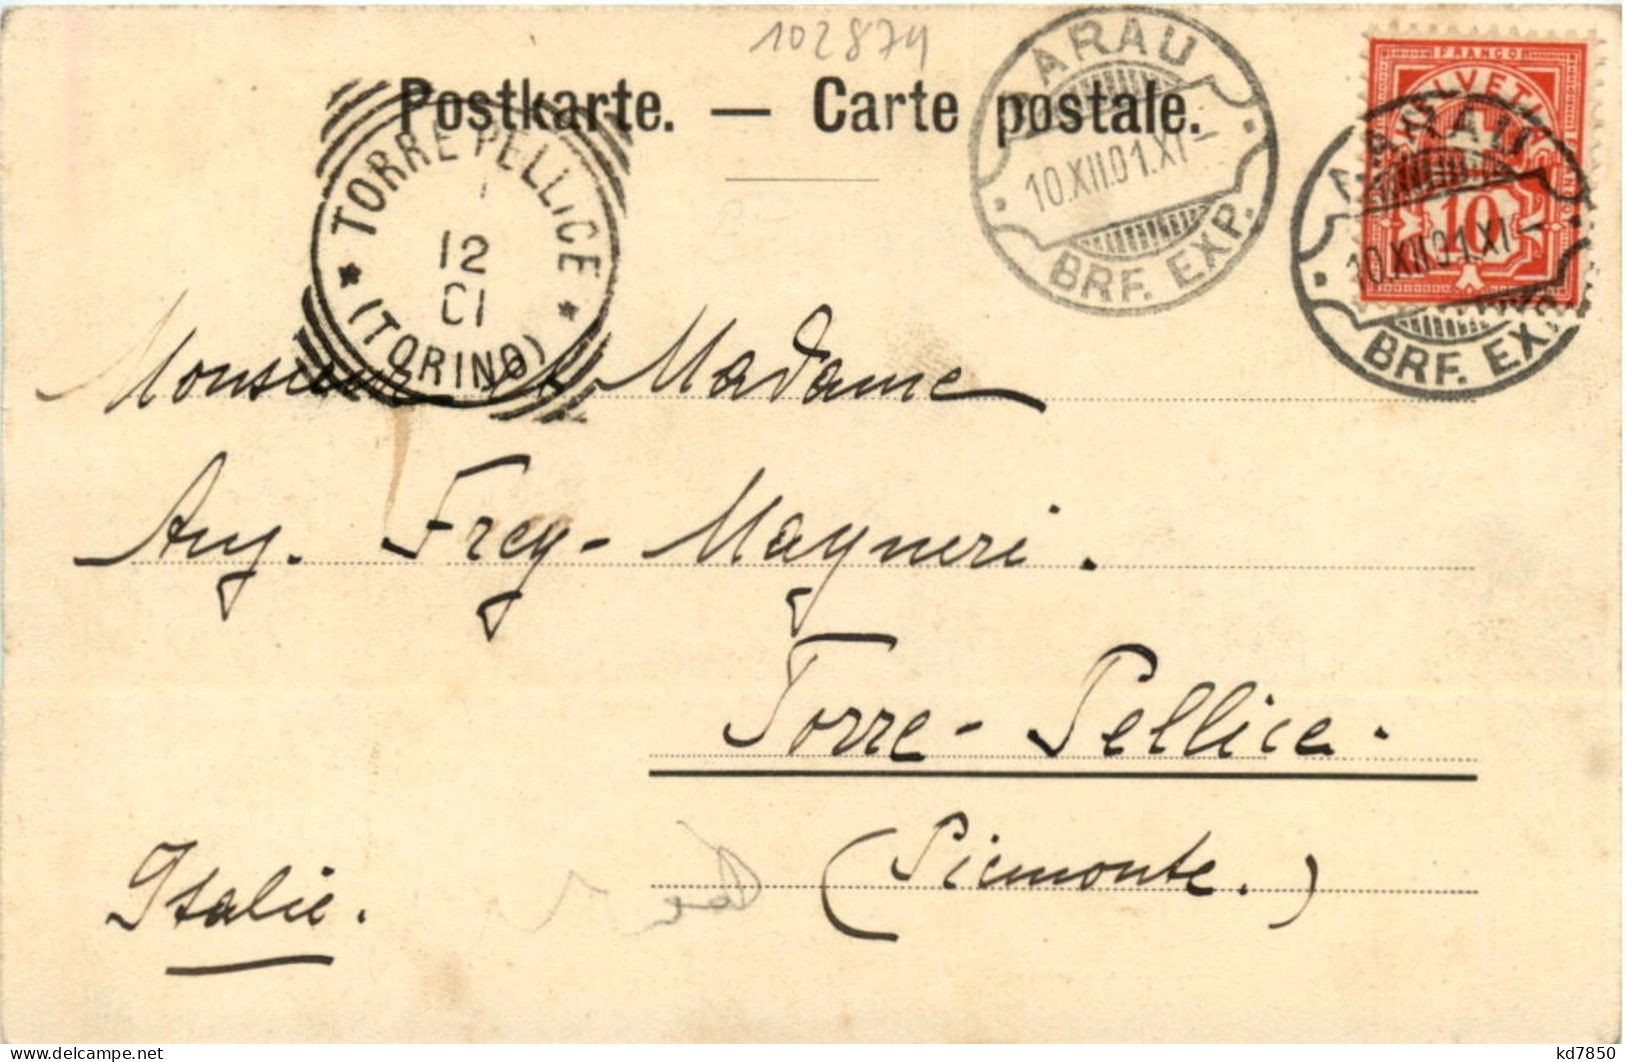 102874
Postkarte. — Carte postale.
AARAU
10.XII.01.XI–
BRF. EXP.
FRANCO
HELVETIA
10
AARAU
10.XII.01.XI–
BRF. EXP.
TORRE PELLICE
12
01
(TORINO)
Monsieur et Madame
Aug. Frey-Mayneri.
Torre-Pellice.
(Piemonte.)
Italie.
kd7850